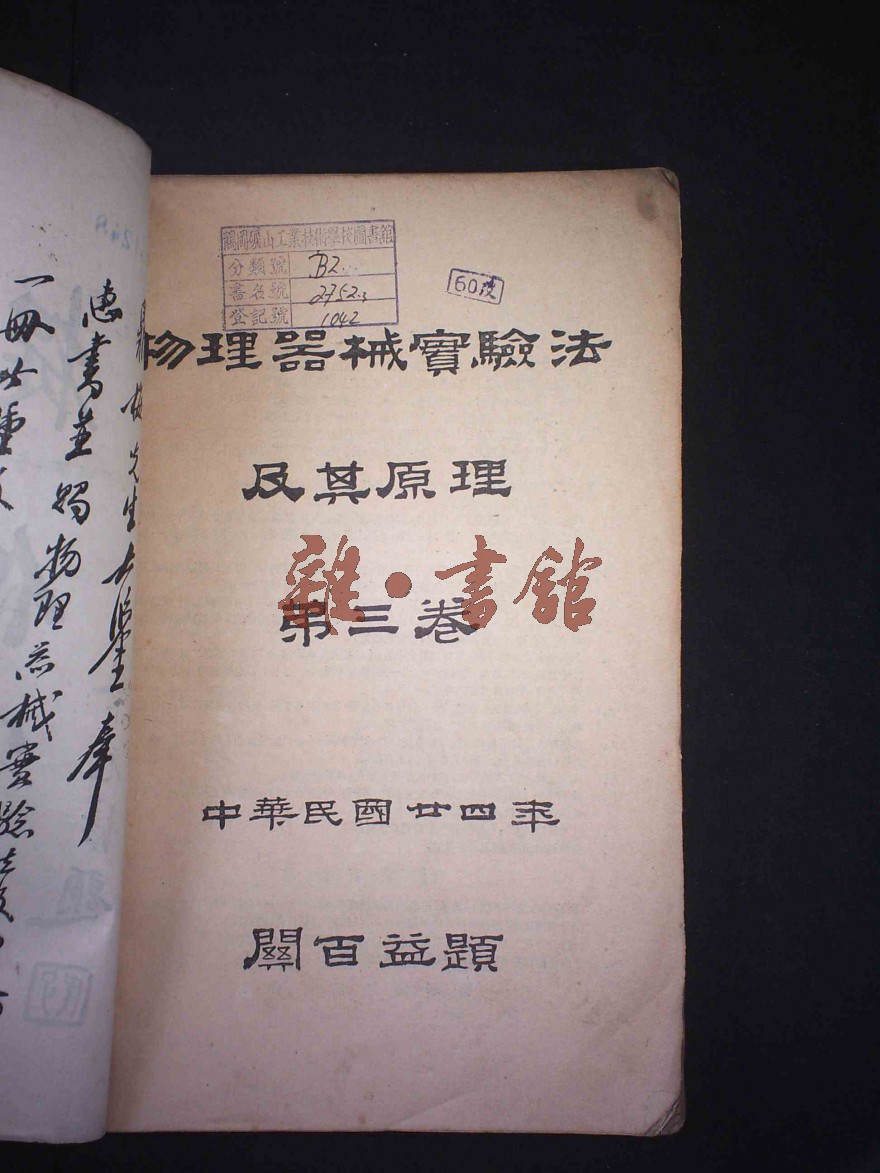 鶴岡礦山工業技術學校圖書館
分類號 B2
書名號 2752.3
登記號 1042
60废
物理器械實驗法
及其原理
雜·書館
第三卷
中華民國廿四年
關百益題
先生大鑒奉
惠書並賜物理器械實驗法
一冊